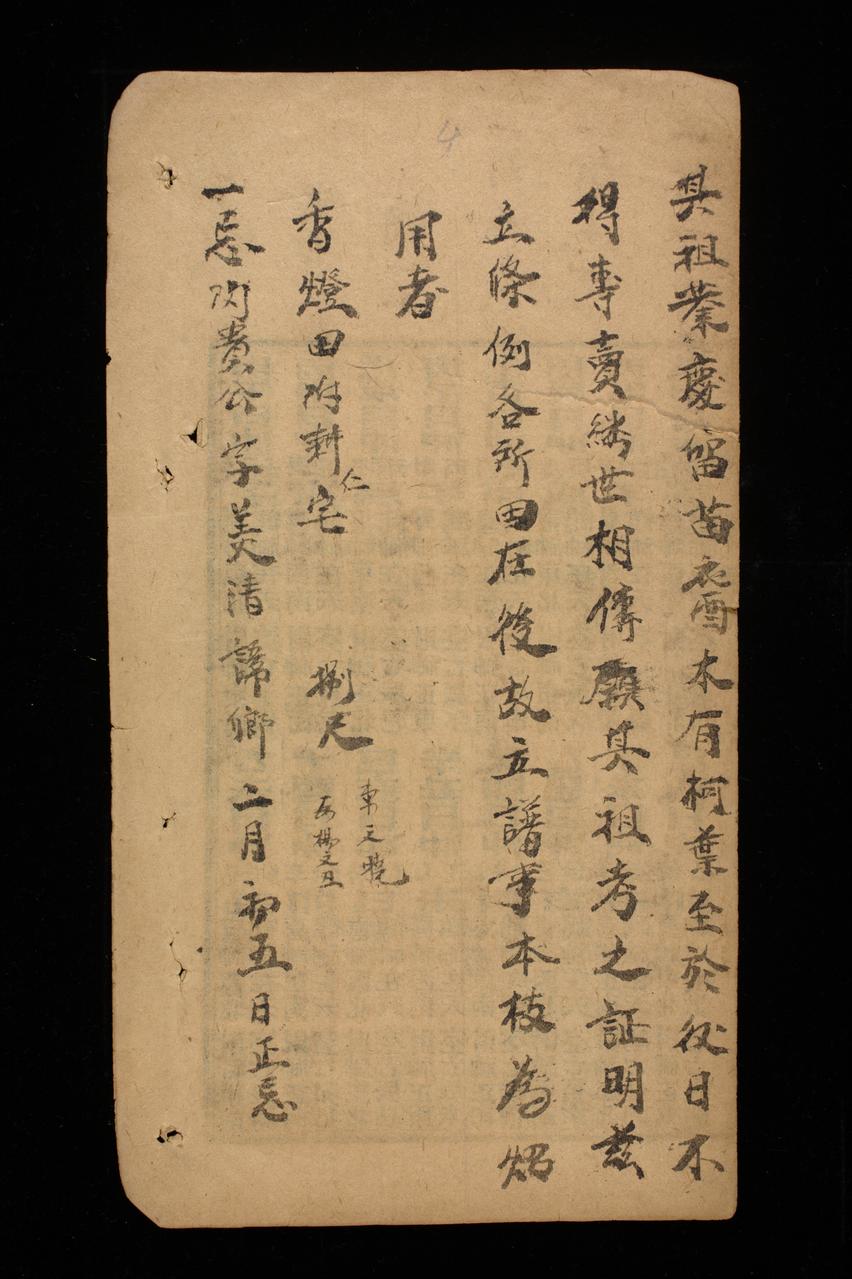 4
其祖業慶留苗裔木有柯葉至於後日不
得專賣綿世相傳願其祖考之証明茲
立條例各所田在後故立譜事本枝為炤
用者
香燈田附耕仁宅 捌尺
東 西
一忌 貴公字美清諦鄉二月初五日正忌